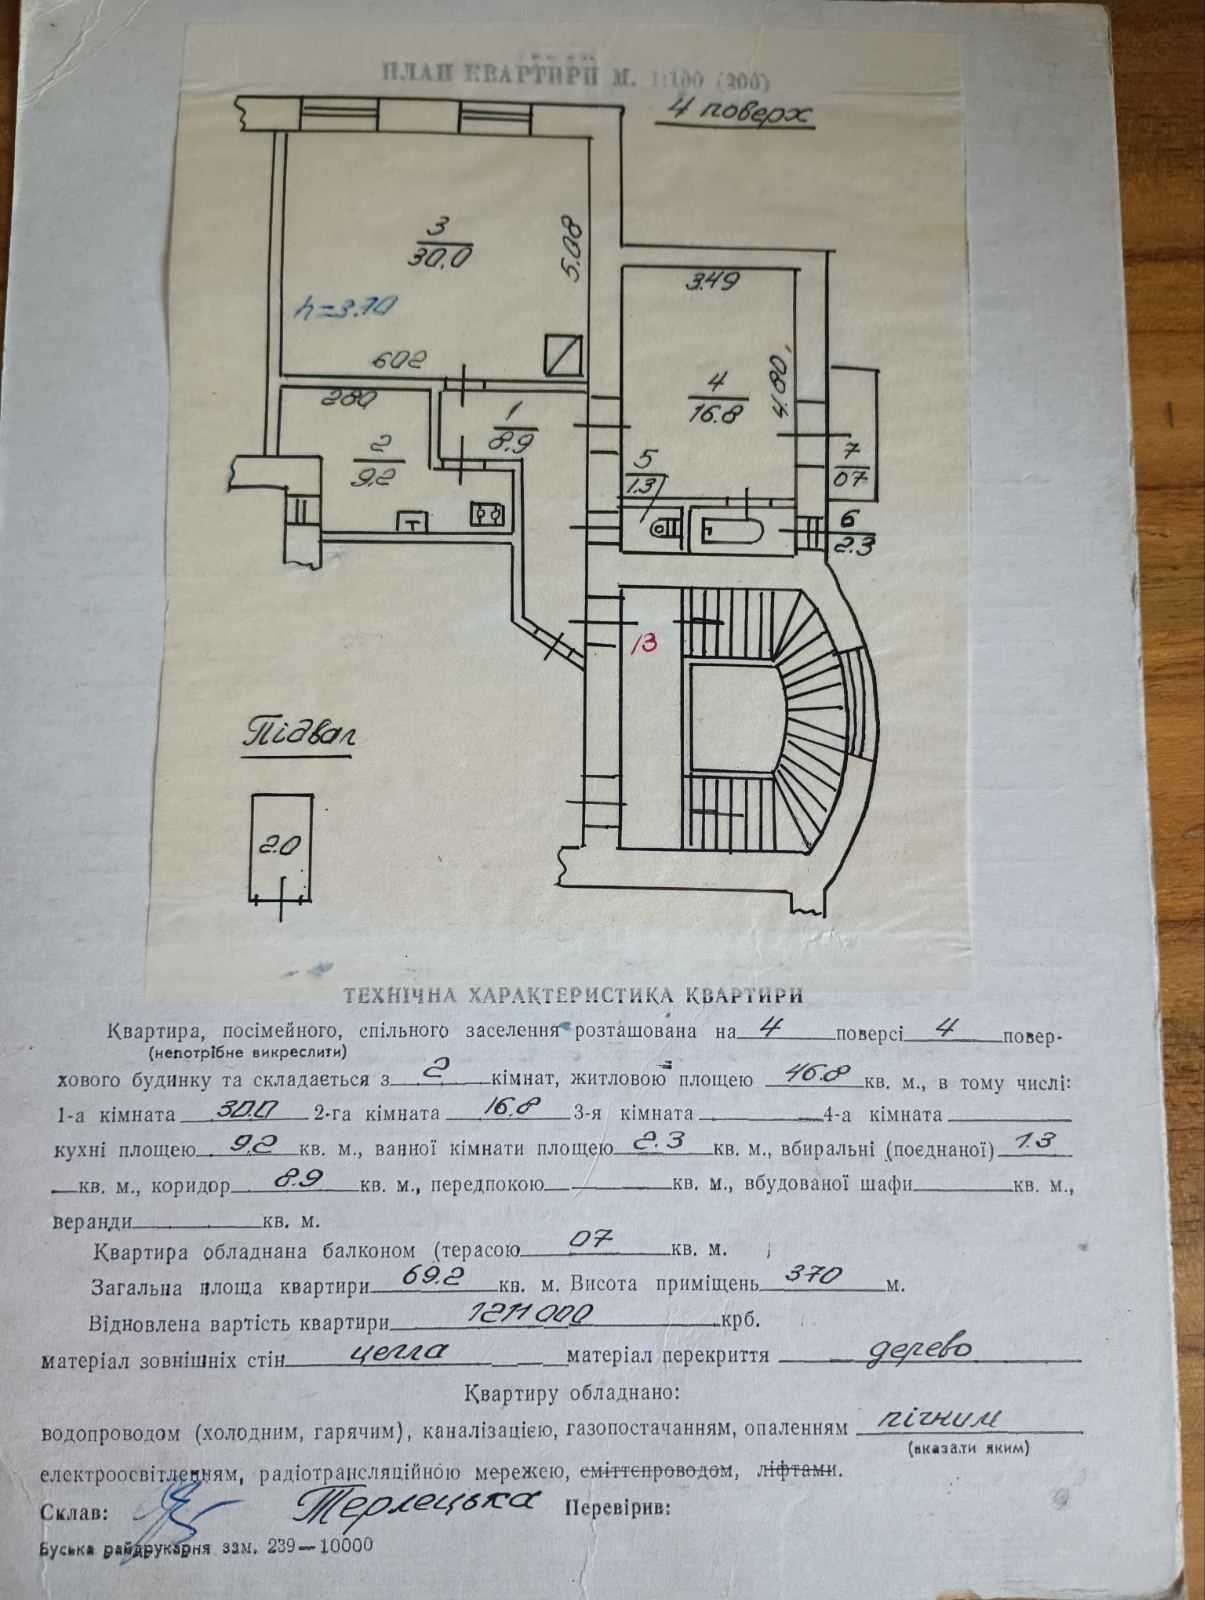 ПЛАН КВАРТИРИ М. 1:100 (200)
4 поверх
3
30.0
5.08
h=3.70
602
3.49
4
16.8
4.80
280
1
8.9
2
9.2
5
1.3
7
07
6
2.3
13
Підвал
2.0
ТЕХНІЧНА ХАРАКТЕРИСТИКА КВАРТИРИ
Квартира, посімейного, спільного заселення розташована на 4 поверсі 4 повер-
(непотрібне викреслити)
хового будинку та складається з 2 кімнат, житловою площею 46.8 кв. м., в тому числі:
1-а кімната 30.0 2-га кімната 16.8 3-я кімната 4-а кімната
кухні площею 9.2 кв. м., ванної кімнати площею 2.3 кв. м., вбиральні (поєднаної) 1.3
кв. м., коридор 8.9 кв. м., передпокою кв. м., вбудованої шафи кв. м.,
веранди кв. м.
Квартира обладнана балконом (терасою 07 кв. м.
Загальна площа квартири 69.2 кв. м. Висота приміщень 370 м.
Відновлена вартість квартири 1211000 крб.
матеріал зовнішніх стін цегла матеріал перекриття дерево
Квартиру обладнано:
водопроводом (холодним, гарячим), каналізацією, газопостачанням, опаленням пічним
(вказати яким)
електроосвітленням, радіотрансляційною мережею, сміттєпроводом, ліфтами.
Склав: Терлецька Перевірив:
Буська райдрукарня зам. 239—10000